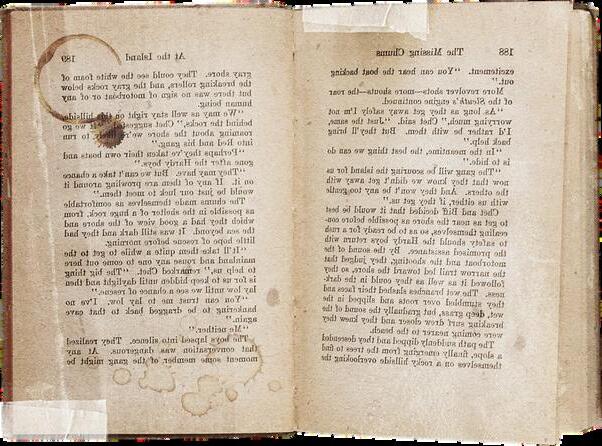 188 The Missing Chums
excitement. "You can hear the boat backing
out."
More revolver shots—more shouts—the roar
of the Sleuth's engine continued.
"As long as they get away safely I'm not
worrying much," Chet said. "Just the same,
I'd rather be with them. But they'll bring
back help."
"In the meantime, the best thing we can do
is to hide."
"The gang will be scouring the island for us
now that they know we didn't get away with
the others. And they won't be any too gentle
with us either, if they get us."
Chet and Biff decided that it would be best
to get as near the shore as possible before con-
cealing themselves, so as to be ready for a rush
to safety should the Hardy boys return with
the promised assistance. By the sound of the
motorboat and the shouting, they judged that
the narrow trail led toward the shore, so they
followed it as well as they could in the dark-
ness. The wet branches slashed their faces and
they stumbled over roots and slipped in the
wet, deep grass, but gradually the sound of the
breaking surf drew closer and they knew they
were coming nearer to the beach.
The path suddenly dipped and they descended
a slope, finally emerging from the trees to find
themselves on a rocky hillside overlooking the
At the Island 189
gray shore. They could see the white foam of
the breaking rollers, and the gray rocks below
but there was no sign of motorboat or of any
human being.
"We may as well stay right on the hillside
behind the rocks," Chet suggested. "If we go
roaming about the shore we're likely to run
into Red and his gang."
"Perhaps they've taken their own boats and
gone after the Hardy boys."
"They may have. But we can't take a chance
on it. If any of them are prowling around it
would be just our luck to meet them."
The chums made themselves as comfortable
as possible in the shelter of a huge rock, from
which they had a good view of the shore and
the sea beyond. It was still dark and they had
little hope of rescue before morning.
"It'll take them quite a while to get to the
mainland and rouse any one to come out here
to help us," remarked Chet. "The big thing
is for us to keep hidden until daylight and then
lay low until we see a chance of rescue."
"You can trust me to lay low. I've no
hankering to be dragged back to that cave
again."
"Me neither."
The boys lapsed into silence. They realized
that conversation was dangerous. At any
moment some member of the gang might be